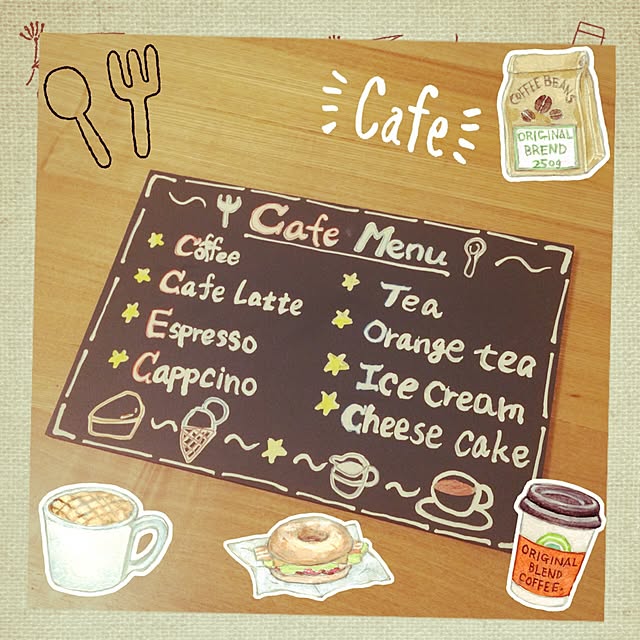 Cafe
COFFEE BEANS
ORIGINAL
BREND
250g
Cafe Menu
Coffee
Cafe Latte
Espresso
Cappcino
Tea
Orange tea
Ice Cream
Cheese cake
ORIGINAL
BLEND
COFFEE.